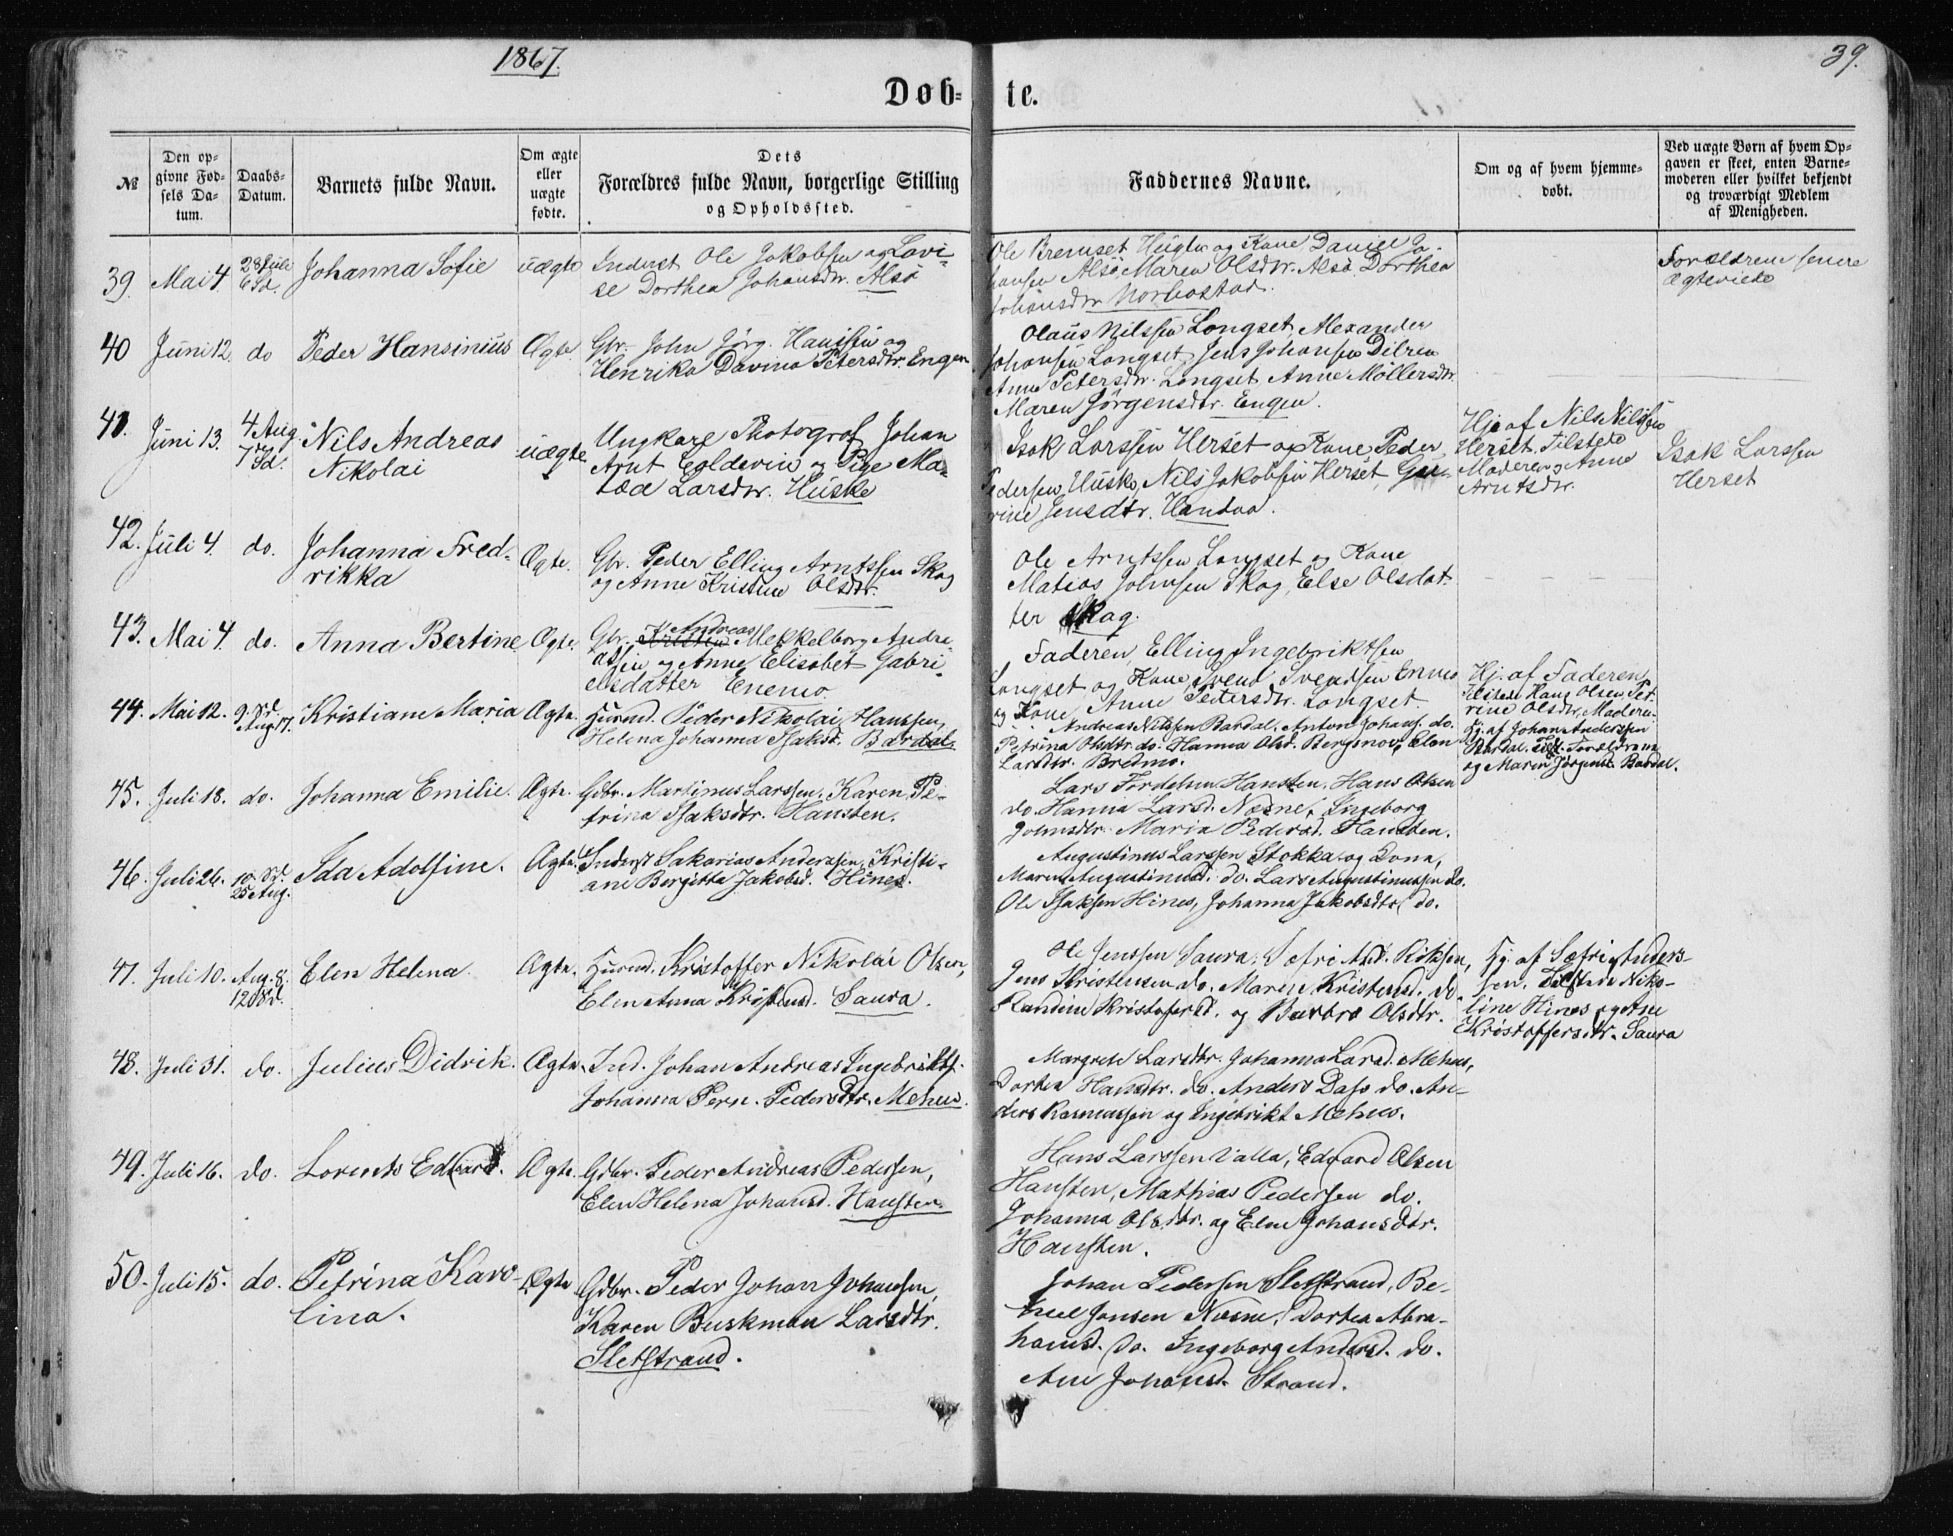 1867.
39.
Døb-
te.
№
Den op-
givne Fød-
sels Da-
tum.
Daabs-
Datum.
Barnets fulde Navn.
Om ægte
eller
uægte
fødte.
Dets
Forældres fulde Navn, borgerlige Stilling
og Opholdssted.
Faddernes Navne.
Om og af hvem hjemme-
døbt.
Ved uægte Børn af hvem Op-
gaven er skeet, enten Barne-
moderen eller hvilket bekjendt
og troværdigt Medlem
af Menigheden.
39. Mai 4. 28 Juli
6 Sd.
Johanna Sofie
uægte
Inderst Ole Jakobsen og Lovi-
se Dorthea Johansdtr. Alsø
Ole Bremset Hugla og Kone Daniel Jo-
hansen Alsø Maren Olsdtr. Alsø, Dorthea
Johansdtr
Forældrene senere
Ægteviede
40 Juni 12. do
Peder Hansinius
Ægte
Gbr. John Jørg. Hansen og
Henrika Davina Petersdtr. Engen
Olaus Nilssen Longset, Alexander
Johansen Longset, Jens Johansen
Anne Petersdtr. Longset, Anne Møllersdtr.
Maren Jørgensdtr. Engen.
41. Juni 13. 4 Aug.
7 Sd.
Nils Andreas
Nikolai
uægte
Ungkarl Photograf Johan
Arnt Coldevin og Pige Ma-
tea Larsdtr. Huske
Isak Larssen Herset og Kone, Peder
Pedersen Huske, Nils Jakobsen Herset,
rine Jensdtr. Handaa.
Hj. af Nils Nilssen
Herset. Tilstede
Moderen og Anne
Arntsdtr.
Isak Larssen
Herset
42. Juli 4. do.
Johanna Fred-
rikka
Ægte.
Gbr. Peder Elling Arntssen Skog
og Anne Kristine Olsdtr.
Ole Arntssen Longset og Kone
Matias Johnsen Skog, Else Olsdat-
ter Skog.
43. Mai 4. do.
Anna Bertine
Ægte.
Gbr. Andreas Mekkelborg Andre
assen og Anne Elisabet Gabri-
elsdatter Enemo
Faderen, Elling Ingebriktsen
Longset og Kone, Svend Svendsen Ennes
og Kone, Anne Petersdtr. Longset.
Hj. af Faderen
Tilstede Hans Olsen, Pet
rine Olsdtr, Moderen.
44. Mai 12. 9. Sd.
Aug 17.
Kristiane Maria
Ægte.
Husmd. Peder Nikolai Hanssen,
Helena Johanna Isaksd. Bardal.
Andreas Nilssen Bardal, Anton Johans. do.
Petrina Olsdtr. do. Hanna Olsd. Bergsnov, Elen
Larsdtr. Bretmo.
Hj. af Johan Anderssen
Bardal. Tilst. Forældrene
og Maren Jørgensd. Bardal.
45. Juli 18. do.
Johanna Emilie.
Ægte.
Gdbr. Martinus Larssen, Karen Pe-
trina Isaksdtr. Hansten.
Lars Tordesen Hansten, Hans Olsen
do. Hanna Larsd. Nesne, Ingeborg
Johnsdtr. Maria Pedersd. Hansten.
46. Juli 26. 10. Sd.
25 Aug.
Ida Adolfine.
Ægte.
Inderst Sakarias Anderssen, Kristi-
ane Bergitta Jakobsd. Hines.
Augustinus Larssen Stokka og Kone,
Maren Augustinusd. do. Lars Augustinussen do.
Ole Isaksen Hines, Johanna Jakobsdtr. do.
47. Juli 10. Aug. 8.
12 Sd.
Elen Helena.
Ægte.
Husmd. Kristoffer Nikolai Olsen,
Elen Anna Kristensd. Saura.
Ole Jenssen Saura, Sefri And. Kiksen,
Jens Kristensen do. Maren Kristensd. do.
Blandine Kristofersd. og Barbro Olsdtr.
Hj. af Sefri Anders-
sen. Tilstede Niko-
line Hines og Ane
Kristoffersdtr. Saura
48. Juli 31. do.
Julius Didrik.
Ægte.
Ind. Johan Andreas Ingebriktss.
Johanna Pern. Pedersdtr. Mehus.
Margrete Larsdtr. Johanna Larsd. Mehus,
Dortea Hansdtr. do. Anders Dass do. An-
ders Rasmussen og Ingebrikt Mehus.
49. Juli 16. do.
Lorents Edvard.
Ægte.
Gdbr. Peder Andreas Pedersen,
Elen Helena Johansd. Hansten.
Hans Larssen Valla, Edvard Olsen
Hansten, Mathias Pedersen do.
Johanna Olsdtr. og Elen Johansdtr.
Hansten.
50. Juli 15. do.
Petrina Karo-
lina.
Ægte
Gdbr. Peder Johan Johansen,
Karen Buskman Larsdtr.
Sletstrand.
Johan Pedersen Sletstrand, Be-
huel Jensen Nesne, Dortea Abra-
hamsd. do. Ingeborg Andersd. do.
Ane Johansd. Strand.